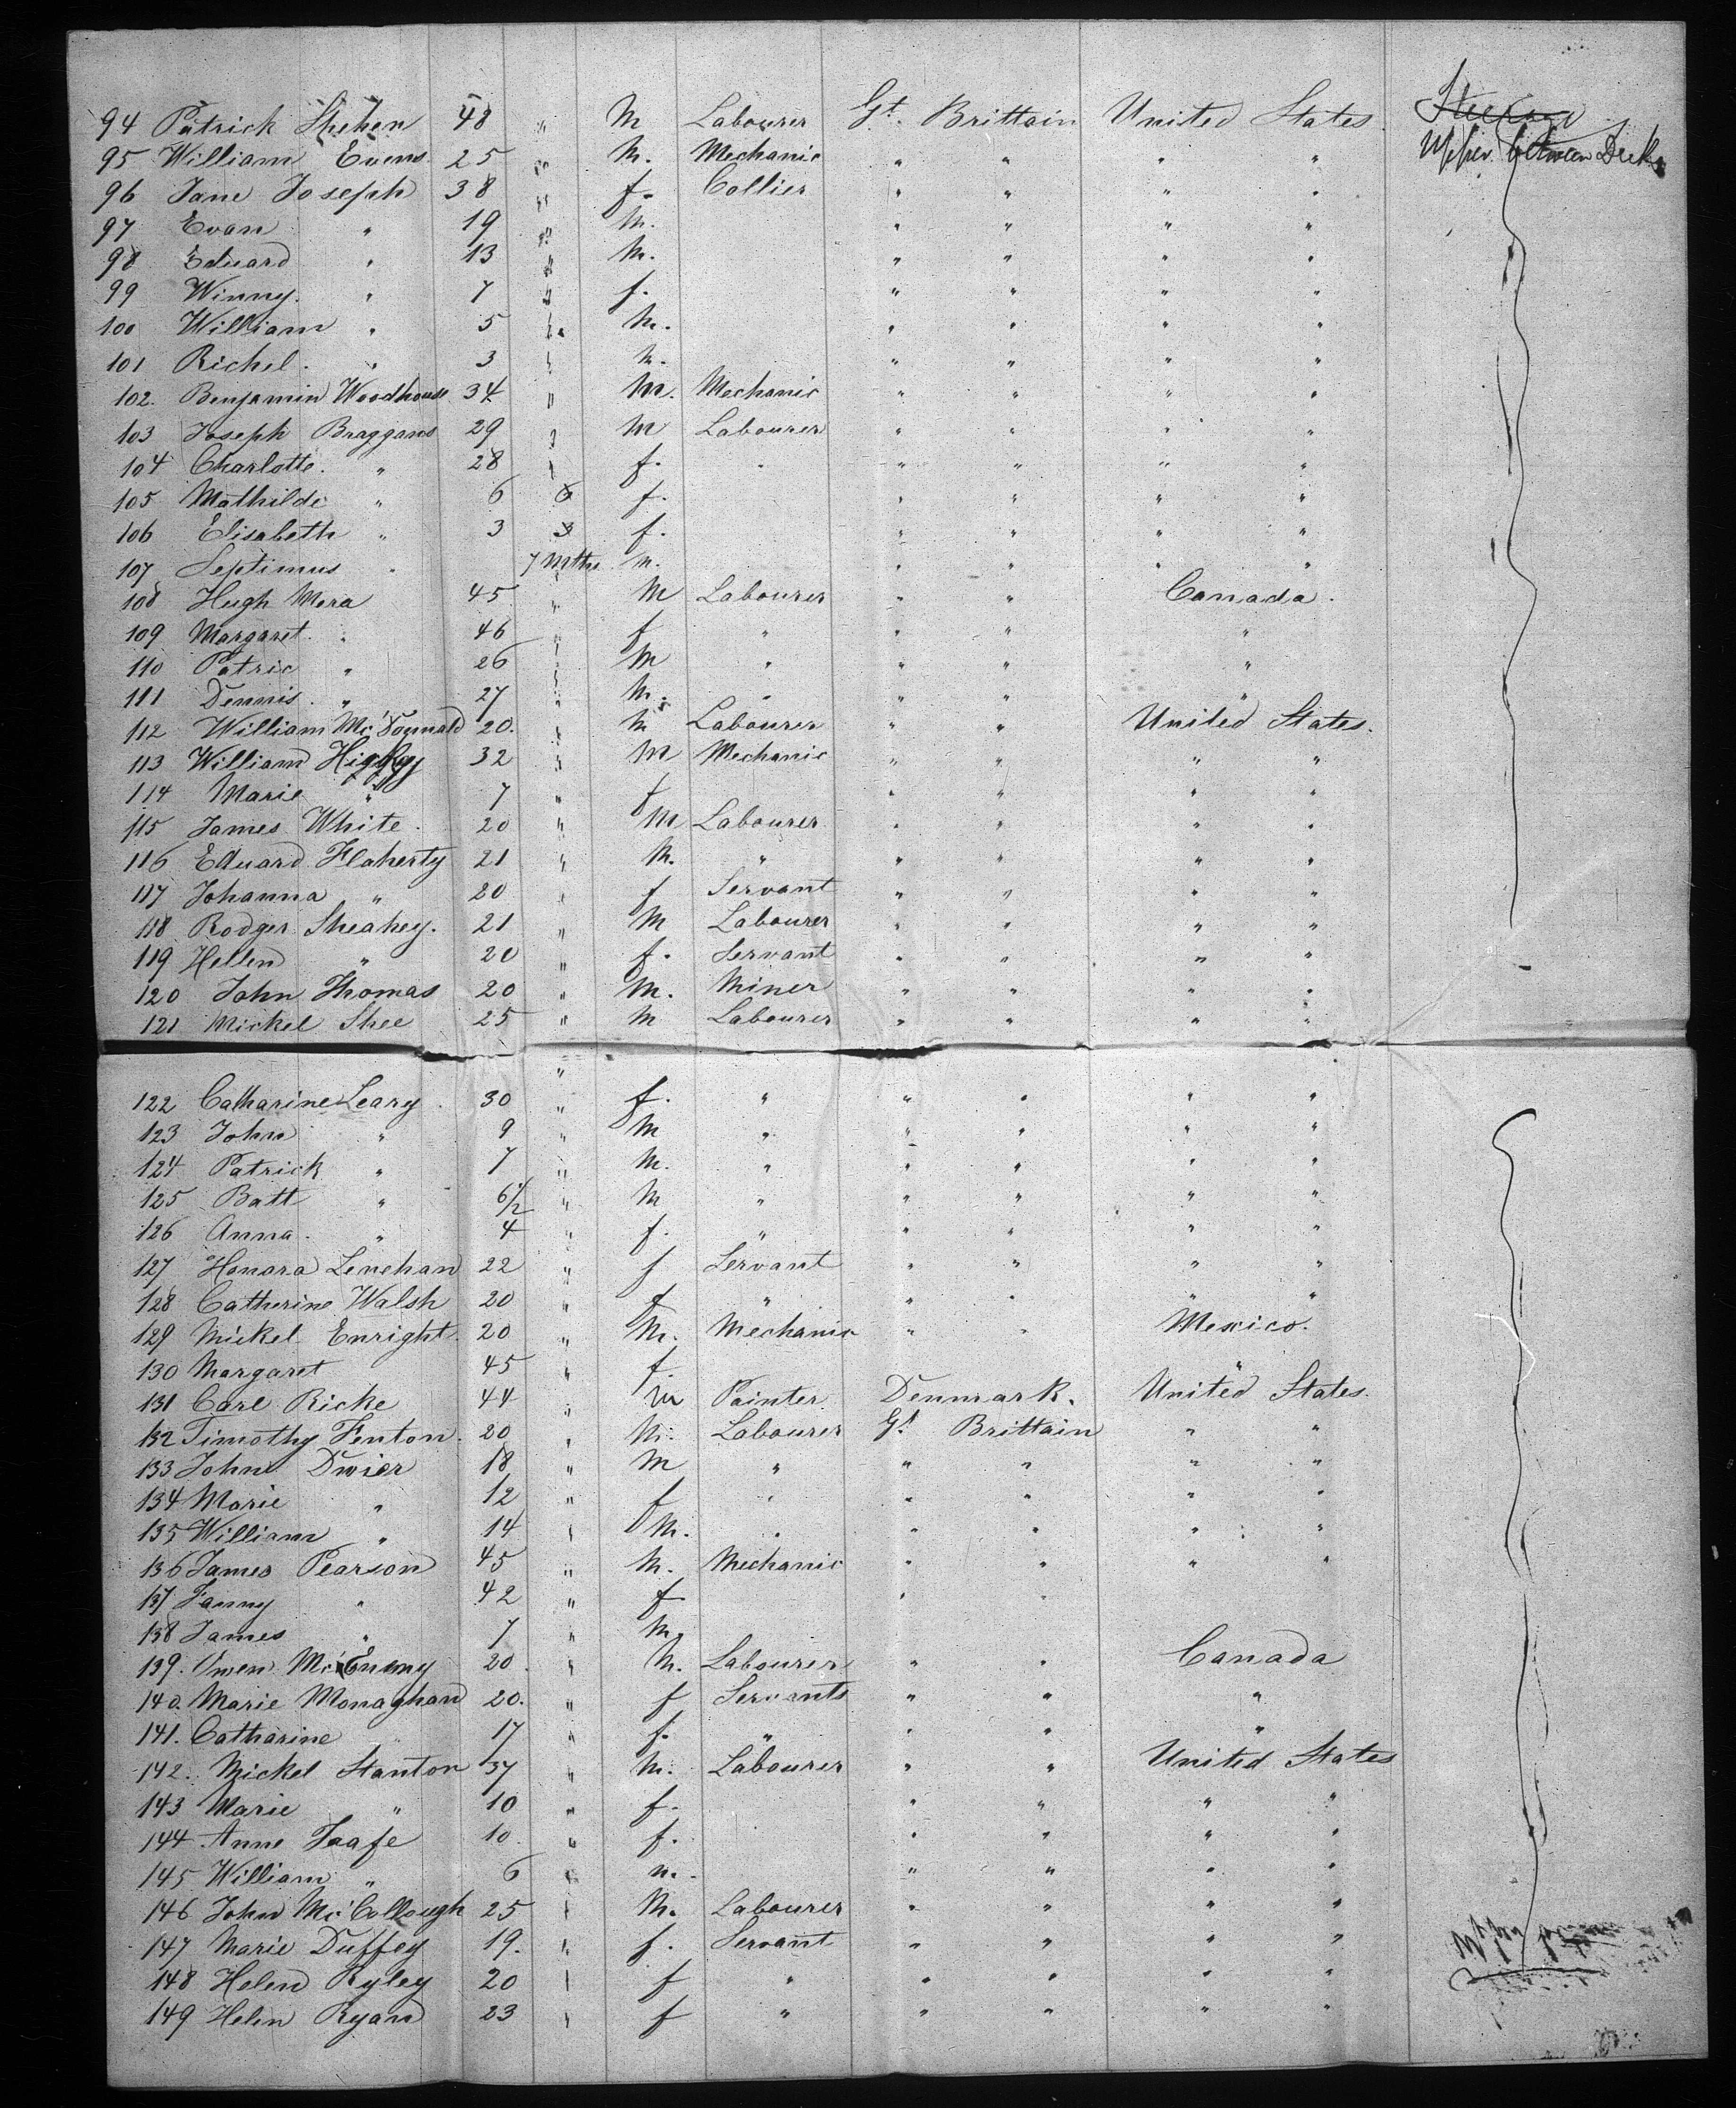 94 Patrick Shehen 48 " M Labourer Gt. Brittain United States
95 William Evens 25 " M. Mechanic " " " " Upper between Decks
96 Jane Joseph 38 " f. Collier " " " "
97 Evan " 19 " M. " " " "
98 Eduard " 13 " M. " " " "
99 Winny. " 7 " f. " " " "
100 William " 5 " M. " " " "
101 Richel. " 3 " M. " " " "
102. Benjamin Woodhouse 34 " M. Mechanic " " " "
103 Joseph Braggans 29 " M Labourer " " " "
104 Charlotte. " 28 " f. " " " " "
105 Mathilde " 6 6 f. " " " "
106 Elisabeth " 3 3 f. " " " "
107 Septimus " 7 Mths m. " " " "
108 Hugh Mera 45 " M Labourer " " Canada.
109 Margaret. " 46 " f " " " "
110 Patric " 26 " M " " " "
111 Dennis. " 27 " M. " " " "
112 William Mc Donnald 20. " M Labourer " " United States.
113 William Higby 32 " M Mechanic " " " "
114 Marie " 7 " f " " " "
115 James White. 20 " M Labourer " " " "
116 Eduard Flaherty 21 " M. " " " " "
117 Johanna " 20 " f Servant " " " "
118 Rodger Sheahey. 21 " M Labourer " " " "
119 Hellen " 20 " f. Servant " " " "
120 John Thomas 20 " M. Miner " " " "
121 Mickel Shee 25 " M Labourer " " " "
122 Catharine Leary. 30 " f. " " " " "
123 John " 9 " M " " " " "
124 Patrick " 7 " M. " " " " "
125 Batt " 6 1/2 " M " " " " "
126 Anna. " 4 " f. " " " " "
127 Honora Lenehan 22 " f Servant " " " "
128 Catherine Walsh 20 " f " " " " "
129 Mickel Enright. 20 " M. Mechanic " " Mexico.
130 Margaret 45 " f. "
131 Carl Ricke 44 " M Painter Denmark. United States.
132 Timothy Fenton. 20 " M. Labourer Gt Brittain " "
133 John Dwier 18 " M " " " " "
134 Marie " 12 " f " " " " "
135 William " 14 " M. " " " " "
136 James Pearson 45 " M. Mechanic " " " "
137 Fanny " 42 " f " "
138 James " 7 " M.
139. Owen Mc Enemy 20. " M. Labourer " " Canada
140. Marie Monaghan 20. " f Servants " " "
141. Catharine " 17 " f. " " " "
142. Mickel Stanton 37 " M. Labourer " " United States
143 Marie " 10 " f. " " " "
144 Anne Taafe 10. " f. " " " "
145 William " 6 " m. " " " "
146 John Mc Collough 25 " M. Labourer " " " "
147 Marie Duffey 19. " f. Servant " " " "
148 Helen Ryley 20 " f " " " " "
149 Helen Ryan 23 " f " " " " "